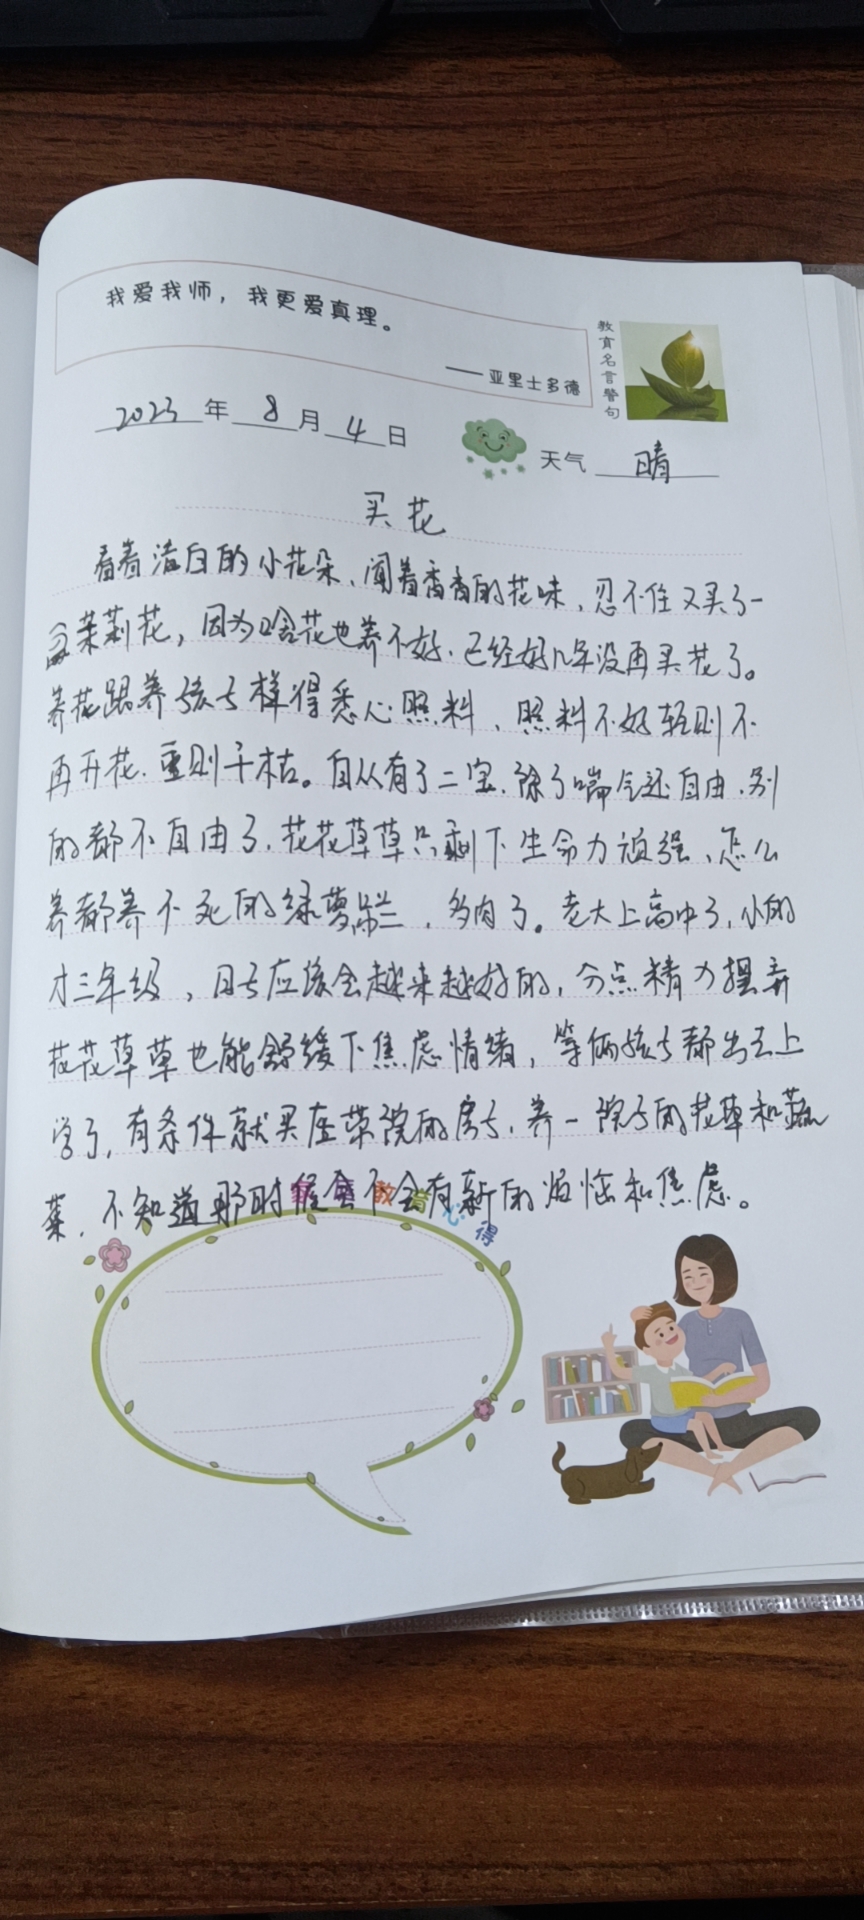 我爱我师，我更爱真理。
——亚里士多德
教育名言警句
2023年8月4日
天气 晴
买花
看着洁白的小花朵、闻着香香的花味，忍不住又买了一
盆茉莉花，因为啥花也养不好，已经好几年没再买花了。
养花跟养孩子一样得悉心照料，照料不好轻则不
再开花，重则干枯。自从有了二宝，除了喘气还自由，别
的都不自由了，花花草草只剩下生命力顽强、怎么
养都养不死的绿萝、吊兰，多肉了。老大上高中了，小的
才三年级，日子应该会越来越好的，分点精力摆弄
花花草草也能舒缓下焦虑情绪，等俩孩子都出去上
学了，有条件就买座带院的房子，养一院子的花草和蔬
菜，不知道那时候会不会有新的烦恼和焦虑。
家庭教育心得